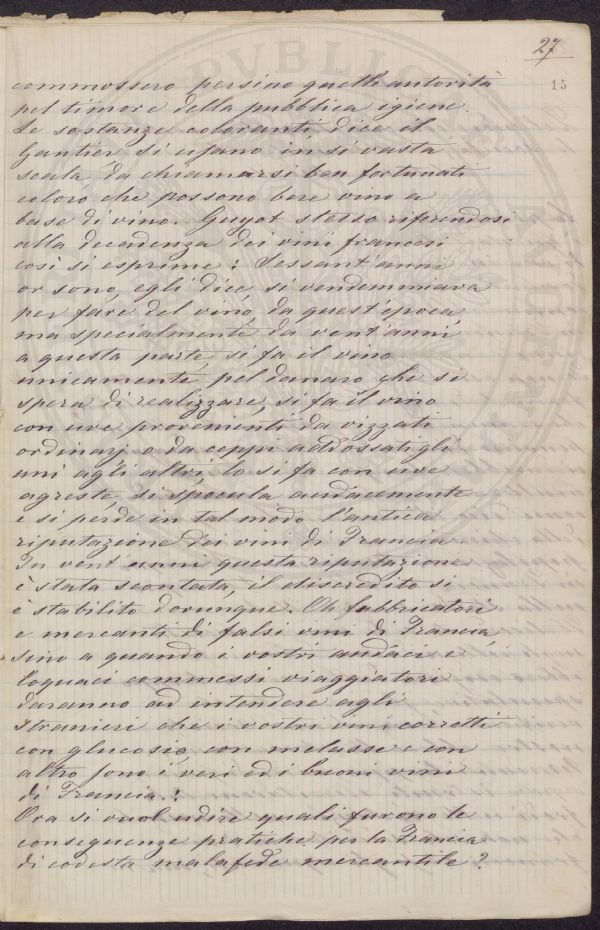 27
15
commossero persino quelle autorità
pel timore della pubblica igiene.
Le sostanze coloranti, dice il
Gautier si usano in si vasta
scala, da chiamarsi ben fortunati
coloro che possono bere vino a
base di vino. Guyot stesso riferendosi
alla decadenza dei vini francesi
così si esprime: Sessant'anni
or sono, egli dice, si vendemmiava
per fare del vino, da quest'epoca
ma specialmente da vent'anni
a questa parte, si fa il vino
unicamente pel danaro che si
spera di realizzare, si fa il vino
con uve provenienti da vizzati
ordinarj o da ceppi addossati gli
uni agli altri, lo si fa con uve
agreste, si specula audacemente
e si perde in tal modo l'antica
riputazione dei vini di Francia
In vent'anni questa riputazione
è stata scontata, il discredito si
è stabilito dovunque. Oh fabbricatori
e mercanti di falsi vini di Francia,
sino a quando i vostri audaci e
loquaci commessi viaggiatori
daranno ad intendere agli
stranieri che i vostri vini corretti
con glucosio, con melasse e con
altro sono i veri ed i buoni vini
di Francia.!
Ora si vuol udire quali furono le
conseguenze pratiche per la Francia
di codesta malafede mercantile?